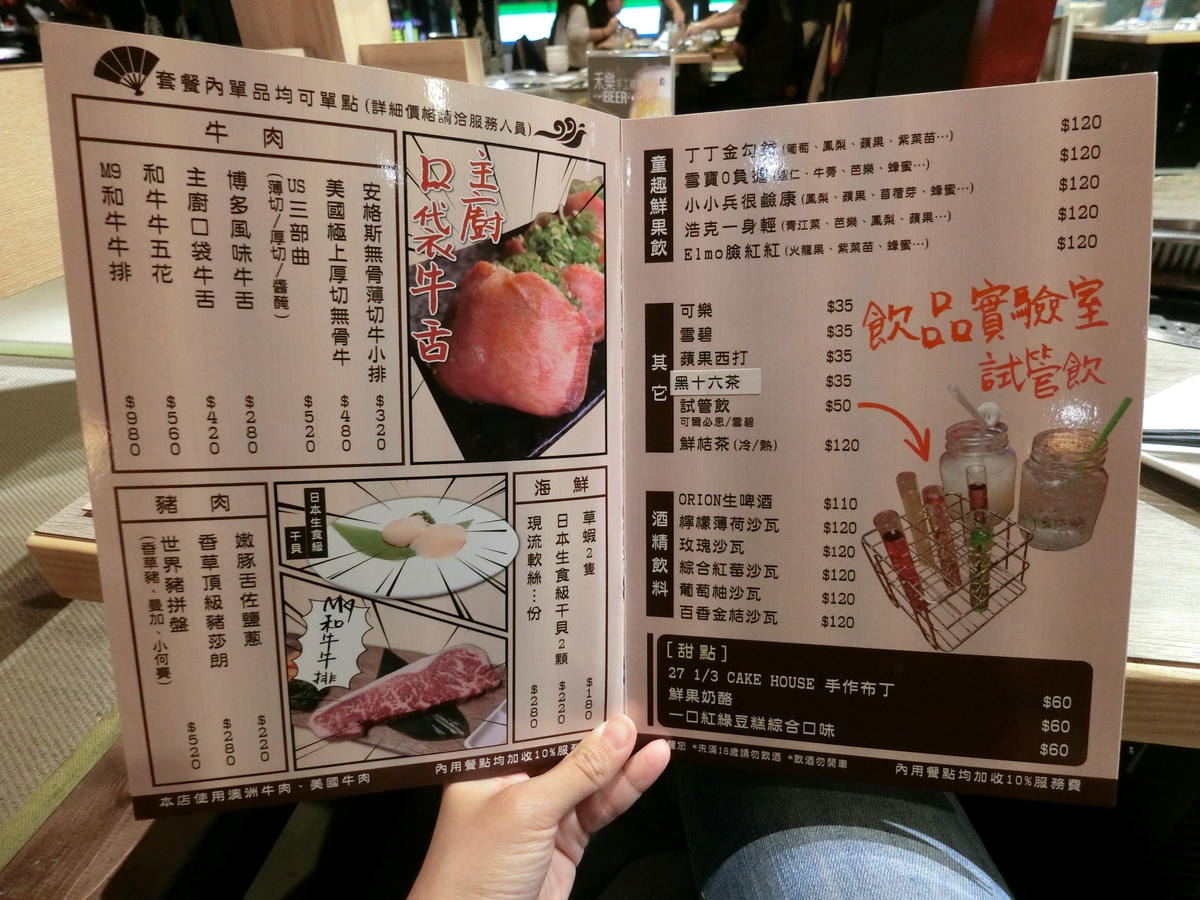 套餐內單品均可單點(詳細價格請洽服務人員)
牛肉
安格斯無骨薄切牛小排 $320
美國極上厚切無骨牛 $480
US三部曲 $520
(薄切/厚切/醬醃)
博多風味牛舌 $280
主廚口袋牛舌 $420
和牛牛五花 $560
M9和牛牛排 $980
主廚
口袋牛舌
豬肉
嫩豚舌佐鹽蔥 $220
香草頂級豬莎朗 $280
世界豬拼盤 $520
(香草豬、曼加、小何賽)
日本生食級
干貝
M9
和牛牛排
海鮮
草蝦2隻 $180
日本生食級干貝2顆 $220
現流軟絲…份 $280
本店使用澳洲牛肉、美國牛肉
內用餐點均加收10%服務
禾樂手工啤
BEER
童趣鮮果飲
丁丁金勾 (葡萄、鳳梨、蘋果、紫菜苗…) $120
雪寶0負擔 仁、牛蒡、芭樂、蜂蜜…) $120
小小兵很鹼康 (鳳梨、蘋果、苜蓿芽、蜂蜜…) $120
浩克一身輕 (青江菜、芭樂、鳳梨、蘋果…) $120
Elmo臉紅紅 (火龍果、紫菜苗、蜂蜜…) $120
其它
可樂 $35
雪碧 $35
蘋果西打 $35
黑十六茶 $35
試管飲 $50
可爾必思/雪碧
鮮桔茶(冷/熱) $120
飲品實驗室
試管飲
酒精飲料
ORION生啤酒 $110
檸檬薄荷沙瓦 $120
玫瑰沙瓦 $120
綜合紅莓沙瓦 $120
葡萄柚沙瓦 $120
百香金桔沙瓦 $120
[甜點]
27 1/3 CAKE HOUSE 手作布丁 $60
鮮果奶酪 $60
一口紅綠豆糕綜合口味 $60
醒您 *未滿18歲請勿飲酒 *飲酒勿開車
內用餐點均加收10%服務費